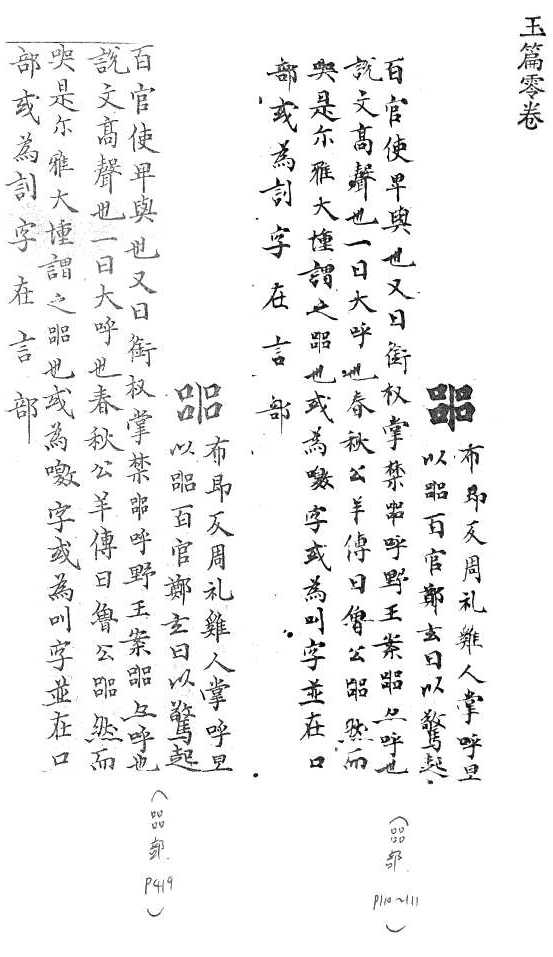 玉篇零卷
嘂
布即反周礼雞人掌呼旦
以嘂百官鄭玄曰以驚起
百官使早與也又曰銜权掌禁嘂呼野王案嘂呼也
說文髙聲也一曰大呼也春秋公羊傳曰魯公嘂然而
哭是尔雅大壎謂之嘂也或為噭字或為叫字並在口
部或為訆字在言部
（㗊部 P110~111）
嘂
布即反周礼雞人掌呼旦
以嘂百官鄭玄曰以驚起
百官使早與也又曰銜权掌禁嘂呼野王案嘂呼也
說文髙聲也一曰大呼也春秋公羊傳曰魯公嘂然而
哭是尔雅大壎謂之嘂也或為噭字或為叫字並在口
部或為訆字在言部
（㗊部 P419）